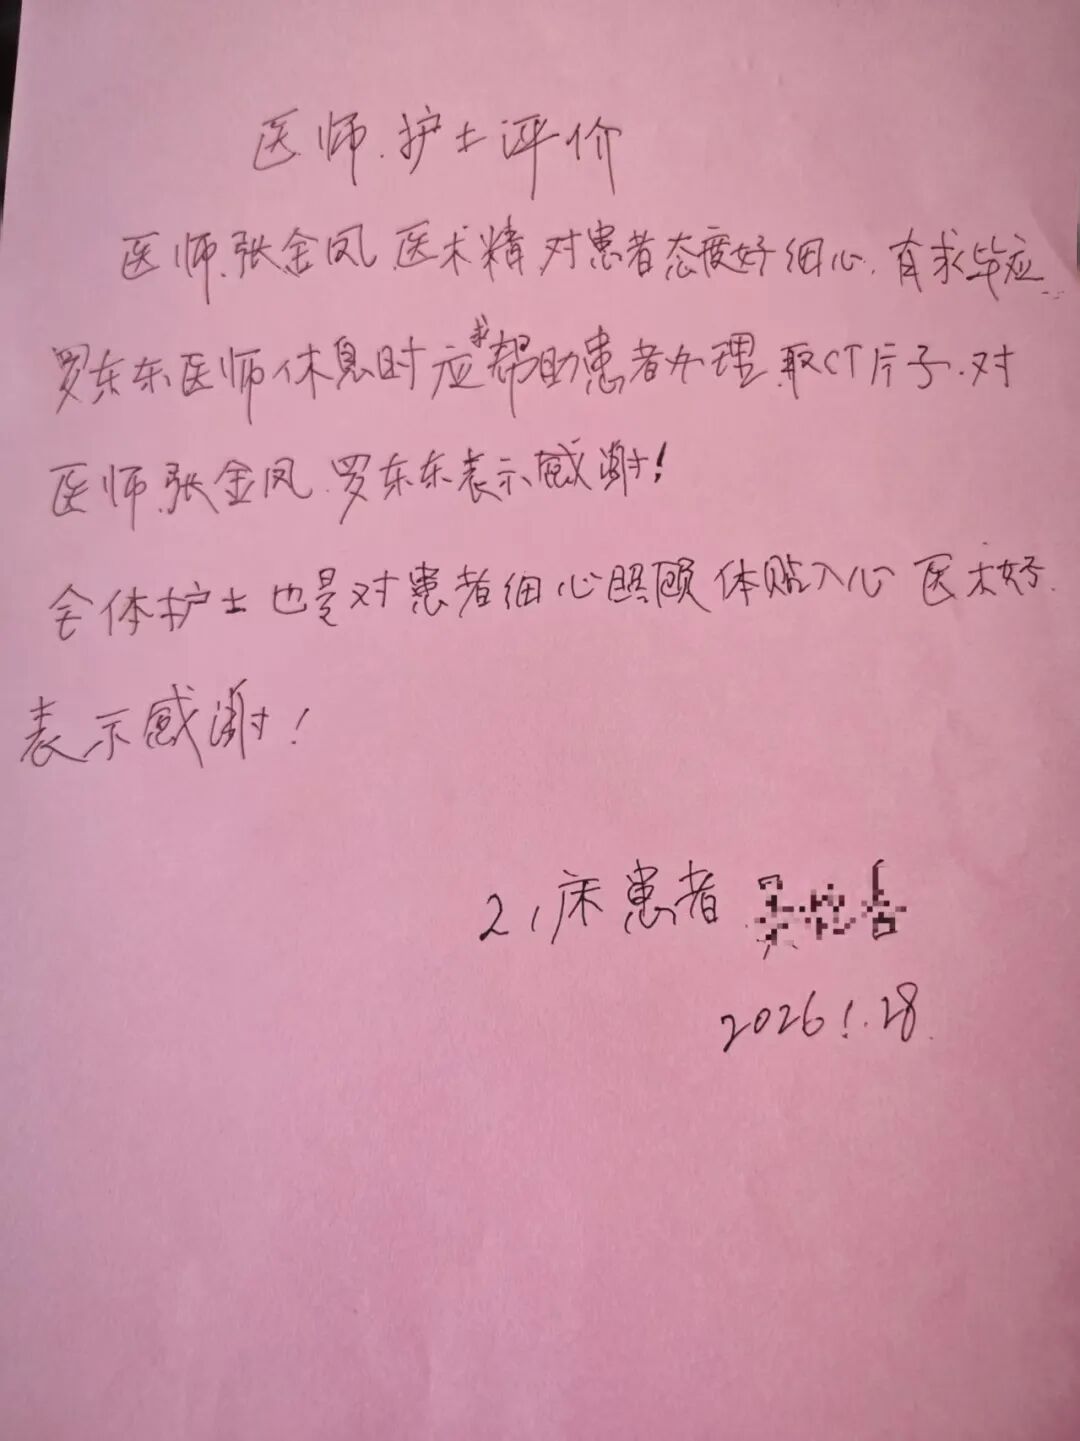 医师.护士评价
医师.张金凤.医术精.对患者态度好细心.有求毕应
罗东东医师休息时应求帮助患者办理取CT片子.对
医师.张金凤.罗东东表示感谢!
全体护士也是对患者细心照顾体贴入心 医术好.
表示感谢!
2,床患者
2026.1.28.